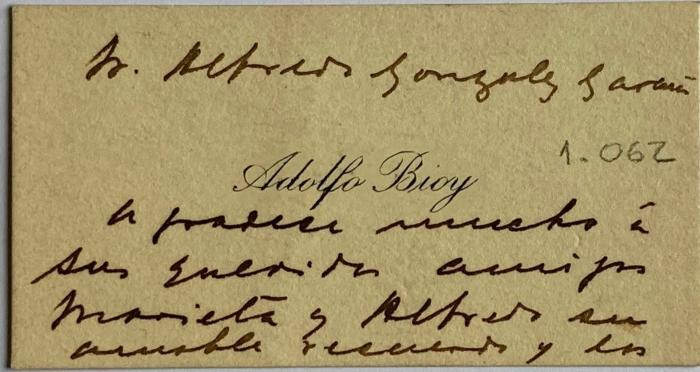 Sr. Alfredo Gonzalez Garaño
1.062
Adolfo Bioy
agradece mucho á
sus queridos amigos
Marieta y Alfredo su
amable recuerdo y los